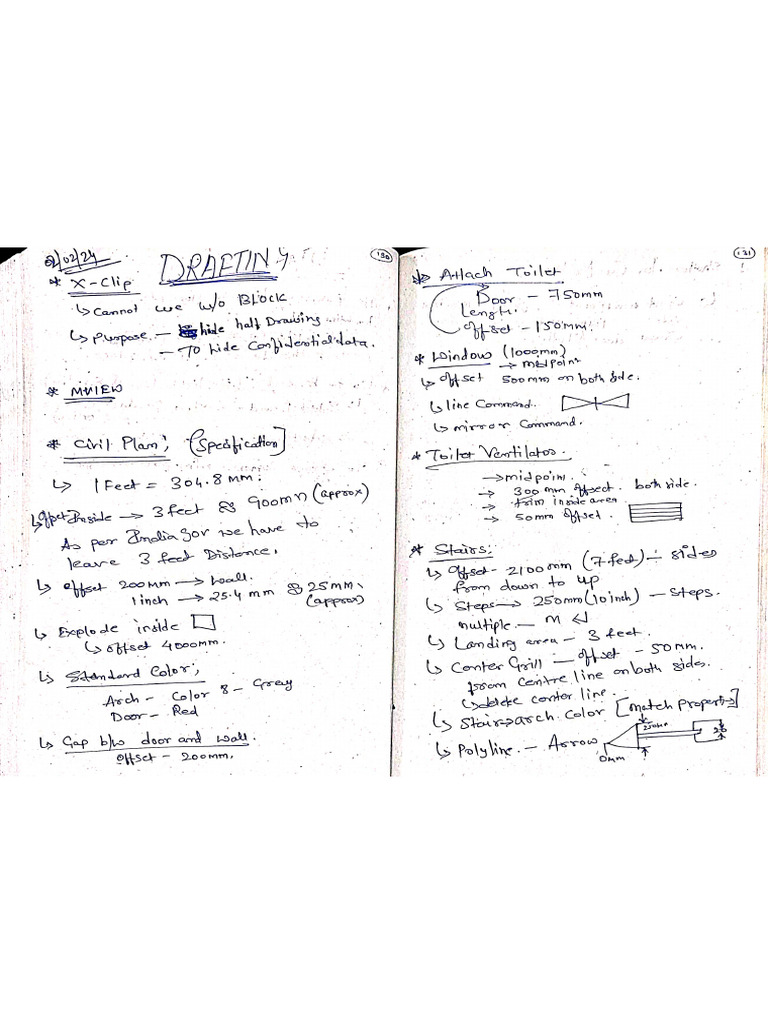 2/02/24
DRAFTING
130
* X-Clip
↳ Cannot we w/o BLOCK
↳ Purpose — hide half Drawing
— To hide Confidential data.
* MVIEW
* Civil Plan; [Specification]
↳ 1 Feet = 304.8 mm.
↳ Offset Inside → 3 feet 900mm (approx)
As per India Gov we have to
leave 3 feet Distance.
↳ offset 200mm → wall.
1 inch → 25.4 mm 25mm (approx)
↳ Explode inside
↳ offset 4000mm.
↳ Standard Color;
Arch - Color 8 - Grey
Door - Red
↳ Gap b/w door and wall.
offset - 200mm.
131
Attach Toilet
Door - 750mm
Length.
offset - 150mm.
* Window (1000mm)
→ midpoint
↳ offset 500mm on both side.
↳ line Command.
↳ mirror Command.
* Toilet Ventilator.
→ midpoint.
→ 300 mm offset. both side.
→ trim inside area
→ 50mm offset.
* Stairs:
↳ offset - 2100mm (7 feet) - sides
from down to up
↳ Steps → 250mm (10 inch) - Steps.
multiple - M ↵
↳ Landing area - 3 feet.
↳ Center Grill - offset - 50mm.
from Centre line on both sides.
↳ delete center line.
↳ Stair → arch color [match property]
↳ Polyline. - Arrow
0mm